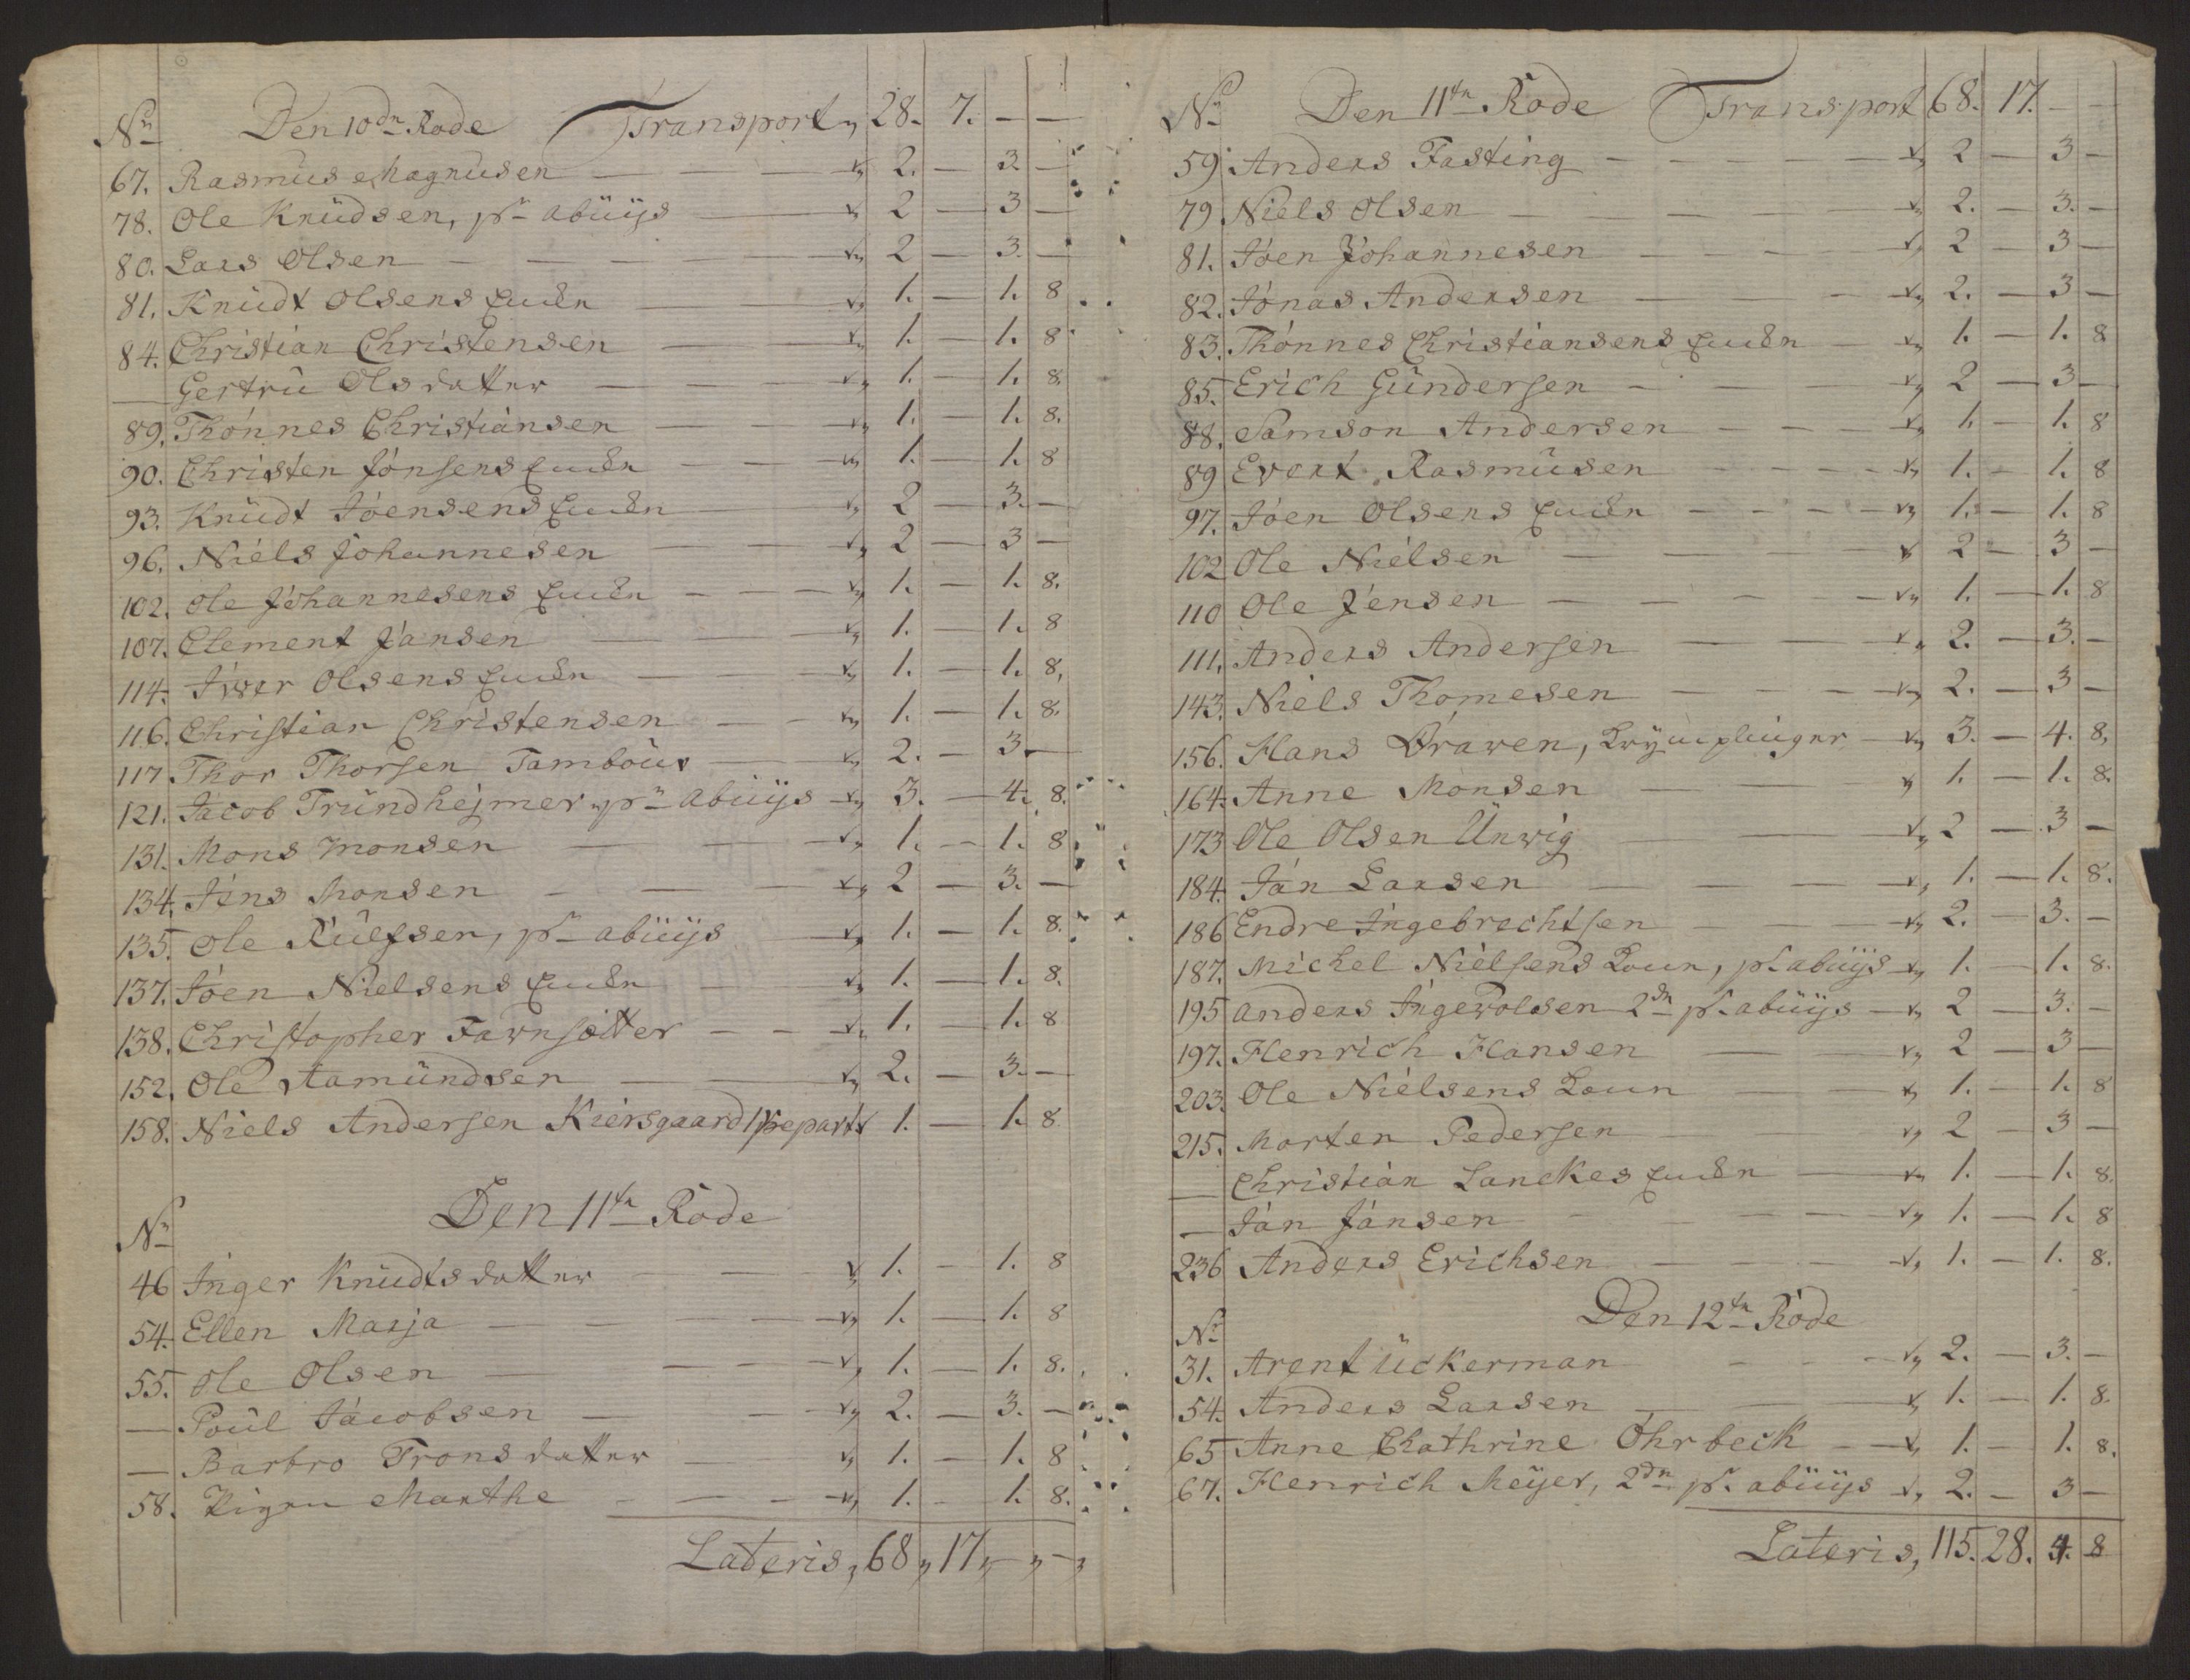 No Den 10de Rode Transport, 28. 7. — —
67. Rasmus Magnusen — — — 2. — 3. —
78. Ole Knüdsen, pr abüijs — 2 — 3 —
80. Lars Olsen — — — 2 — 3. —
81. Knüdt Olsens Encke — — 1. — 1. 8
84. Christian Christensen — — 1. — 1. 8
— Gertru Olsdatter — — — 1. — 1. 8.
89. Thónnes Christiansen — — — 1. — 1. 8.
90. Christen Jónsens Encke — — — 1. — 1. 8
93. Knüdt Jóensens Encke — — 2 — 3. —
96. Niels Johannesen — — — 2 — 3 —
102. Ole Johannesens Encke — — — 1. — 1. 8.
107. Clement Jansen — — — 1. — 1. 8
114. Iver Olsens Encke — — — 1. — 1. 8,
116. Christian Christensen — — 1. — 1. 8.
117. Thor Thorsen Tambour — 2. — 3. —
121. Jacob Tründhejmer pr abüijs — 3. — 4. 8.
131. Mons Monsen — — — 1. — 1. 8
134. Jens Monsen — — — 2 — 3. —
135. Ole Rülfsen, pr abüijs — 1. — 1. 8.
137. Jóen Nielsens Encke — — 1. — 1. 8.
138. Christopher — — — 1. — 1. 8
152. Ole Aamündsen — — 2. — 3. —
158. Niels Andersen Kiersgaard 1 part 1. — 1. 8
No Den 11te Rode
46 Inger Knüdtsdatter — — 1. — 1. 8
54. Ellen Marja — — — 1. — 1. 8
55. Ole Olsen — — — — 1. — 1. 8.
— Poul Jacobsen — — — 2. — 3. —
— Barbro Tronsdatter — — 1. — 1. 8
58. Pigen Marthe — — — 1. — 1. 8.
Lateris, 68, 17, — —
No Den 11te Rode Transport 68. 17. — —
59. Anders Fasting — — — 2 — 3 —
79 Niels Olsen — — — 2. — 3. —
81. Jóen Johannesen — — — 2 — 3 —
82. Jónas Andersen — — — 2. — 3 —
83. Thónnes Christiansens Encke — 1. — 1. 8
85. Erich Gündersen — — — 2 — 3 —
88. Samson Andersen — — — 1. — 1. 8
89 Evert Rasmüsen — — — 1. — 1. 8
97. Jóen Olsens Encke — — — 1. — 1. 8
102 Ole Nielsen — — — 2 — 3 —
110 Ole Jensen — — — — 1. — 1. 8
111. Anders Andersen — — 2. — 3. —
143. Niels Thomesen — — — 2. — 3 —
156. Hans Draven, — 3. — 4. 8,
164. Anne Monsen — — 1. — 1. 8.
173 Ole Olsen Ünwig — 2 — 3 —
184. Ján Larsen — — — 1. — 1. 8.
186 Endre Ingebrechtsen — — 2. — 3. —
187. Michel Nielsens Koun, pr abüijs — 1. — 1. 8.
195 Anders Ingevolsen 2de pr abüijs — 2 — 3. —
197. Henrich Hansen — — 2 — 3 —
203. Ole Nielsens Koun — — 1. — 1. 8
215. Morten Pedersen — — 2 — 3 —
— Christian Lanckes Encke — 1. — 1. 8.
— Ján Jánsen — — — 1. — 1. 8
236 Anders Erichsen — — — 1. — 1. 8.
No Den 12te Rode
31. Arent Üókerman — — 2. — 3. —
54. Anders Larsen — — 1. — 1. 8.
65 Anne Chathrine Öhrbeck — 1. — 1. 8.
67. Henrich Meijer, 2de pr abüijs — 2. — 3 —
Lateris, 115. 28. 4. 8